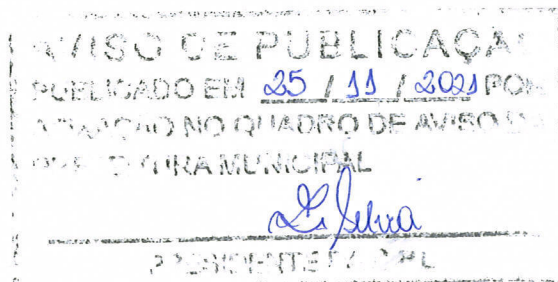 AVISO DE PUBLICAÇÃO
PUBLICADO EM 25 / 11 / 2021 POR
NO QUADRO DE AVISO
MUNICIPAL
L. Silva
PRESIDENTE